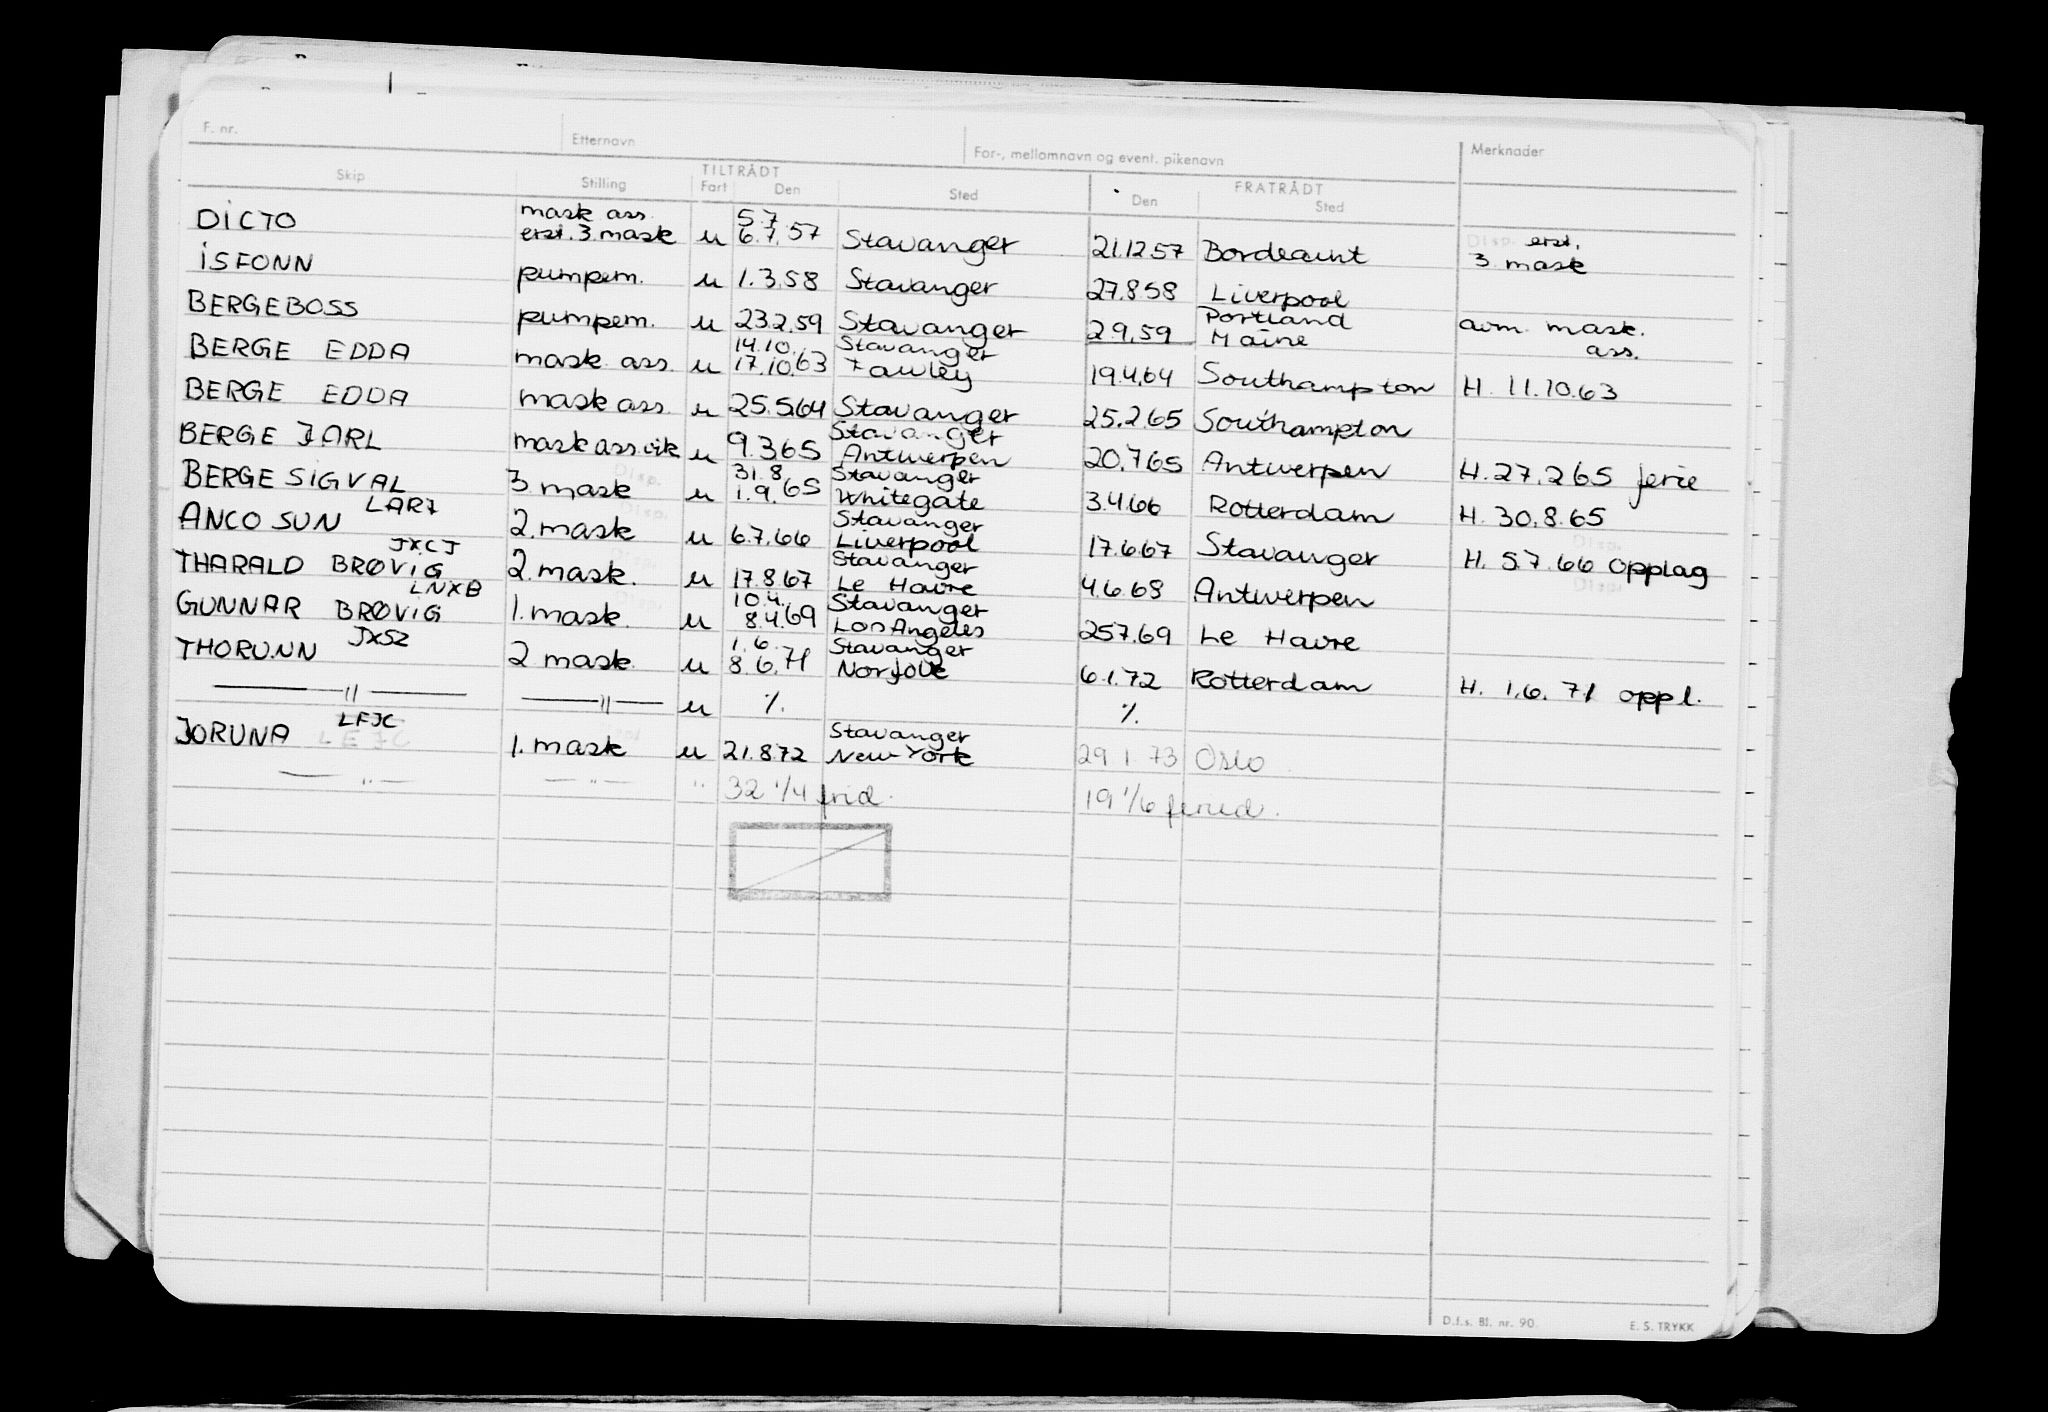 F. nr. Etternavn For-, mellomnavn og event. pikenavn Merknader
Skip Stilling TILTRÅDT Fart Den Sted FRATRÅDT Den Sted
mask ass. 5.7.
DICTO erst. 3. mask u 6.7.57 Stavanger 21.12.57 Bordeaux Disp. erst. 3 mask
ISFONN pumpem. u 1.3.58 Stavanger 27.8.58 Liverpool
BERGEBOSS pumpem. u 23.2.59 Stavanger 2.9.59 Portland Maine avm. mask. ass.
14.10. Stavanger
BERGE EDDA mask. ass. u 17.10.63 Fawley 19.4.64 Southampton H. 11.10.63
BERGE EDDA mask ass. u 25.5.64 Stavanger 25.2.65 Southampton
Stavanger
BERGE JARL mask ass. vik u 9.3.65 Antwerpen 20.7.65 Antwerpen H. 27.2.65 ferie
31.8. Stavanger
BERGE SIGVAL 3. mask Disp. u 1.9.65 Whitegate 3.4.66 Rotterdam H. 30.8.65
LAR7 Stavanger
ANCO SUN 2. mask Disp. u 6.7.66 Liverpool 17.6.67 Stavanger H. 5.7.66 opplag Disp.
JXCJ Stavanger
THARALD BRØVIG 2. mask. Disp. u 17.8.67 Le Havre 4.6.68 Antwerpen Disp.
LNXB 10.4. Stavanger
GUNNAR BRØVIG 1. mask. Disp. u 8.4.69 Los Angeles 25.7.69 Le Havre
JXSZ 1.6. Stavanger
THORUNN 2 mask. u 8.6.71 Norfolk 6.1.72 Rotterdam H. 1.6.71 oppl.
—"— —"— u % %
LFJC Stavanger
JORUNA LEJC 1. mask u 21.8.72 New York 29 1 73 Oslo
—"— —"— " 32 1/4 frid. 19 1/6 feried.
D.f.s. Bl. nr. 90. E. S. TRYKK